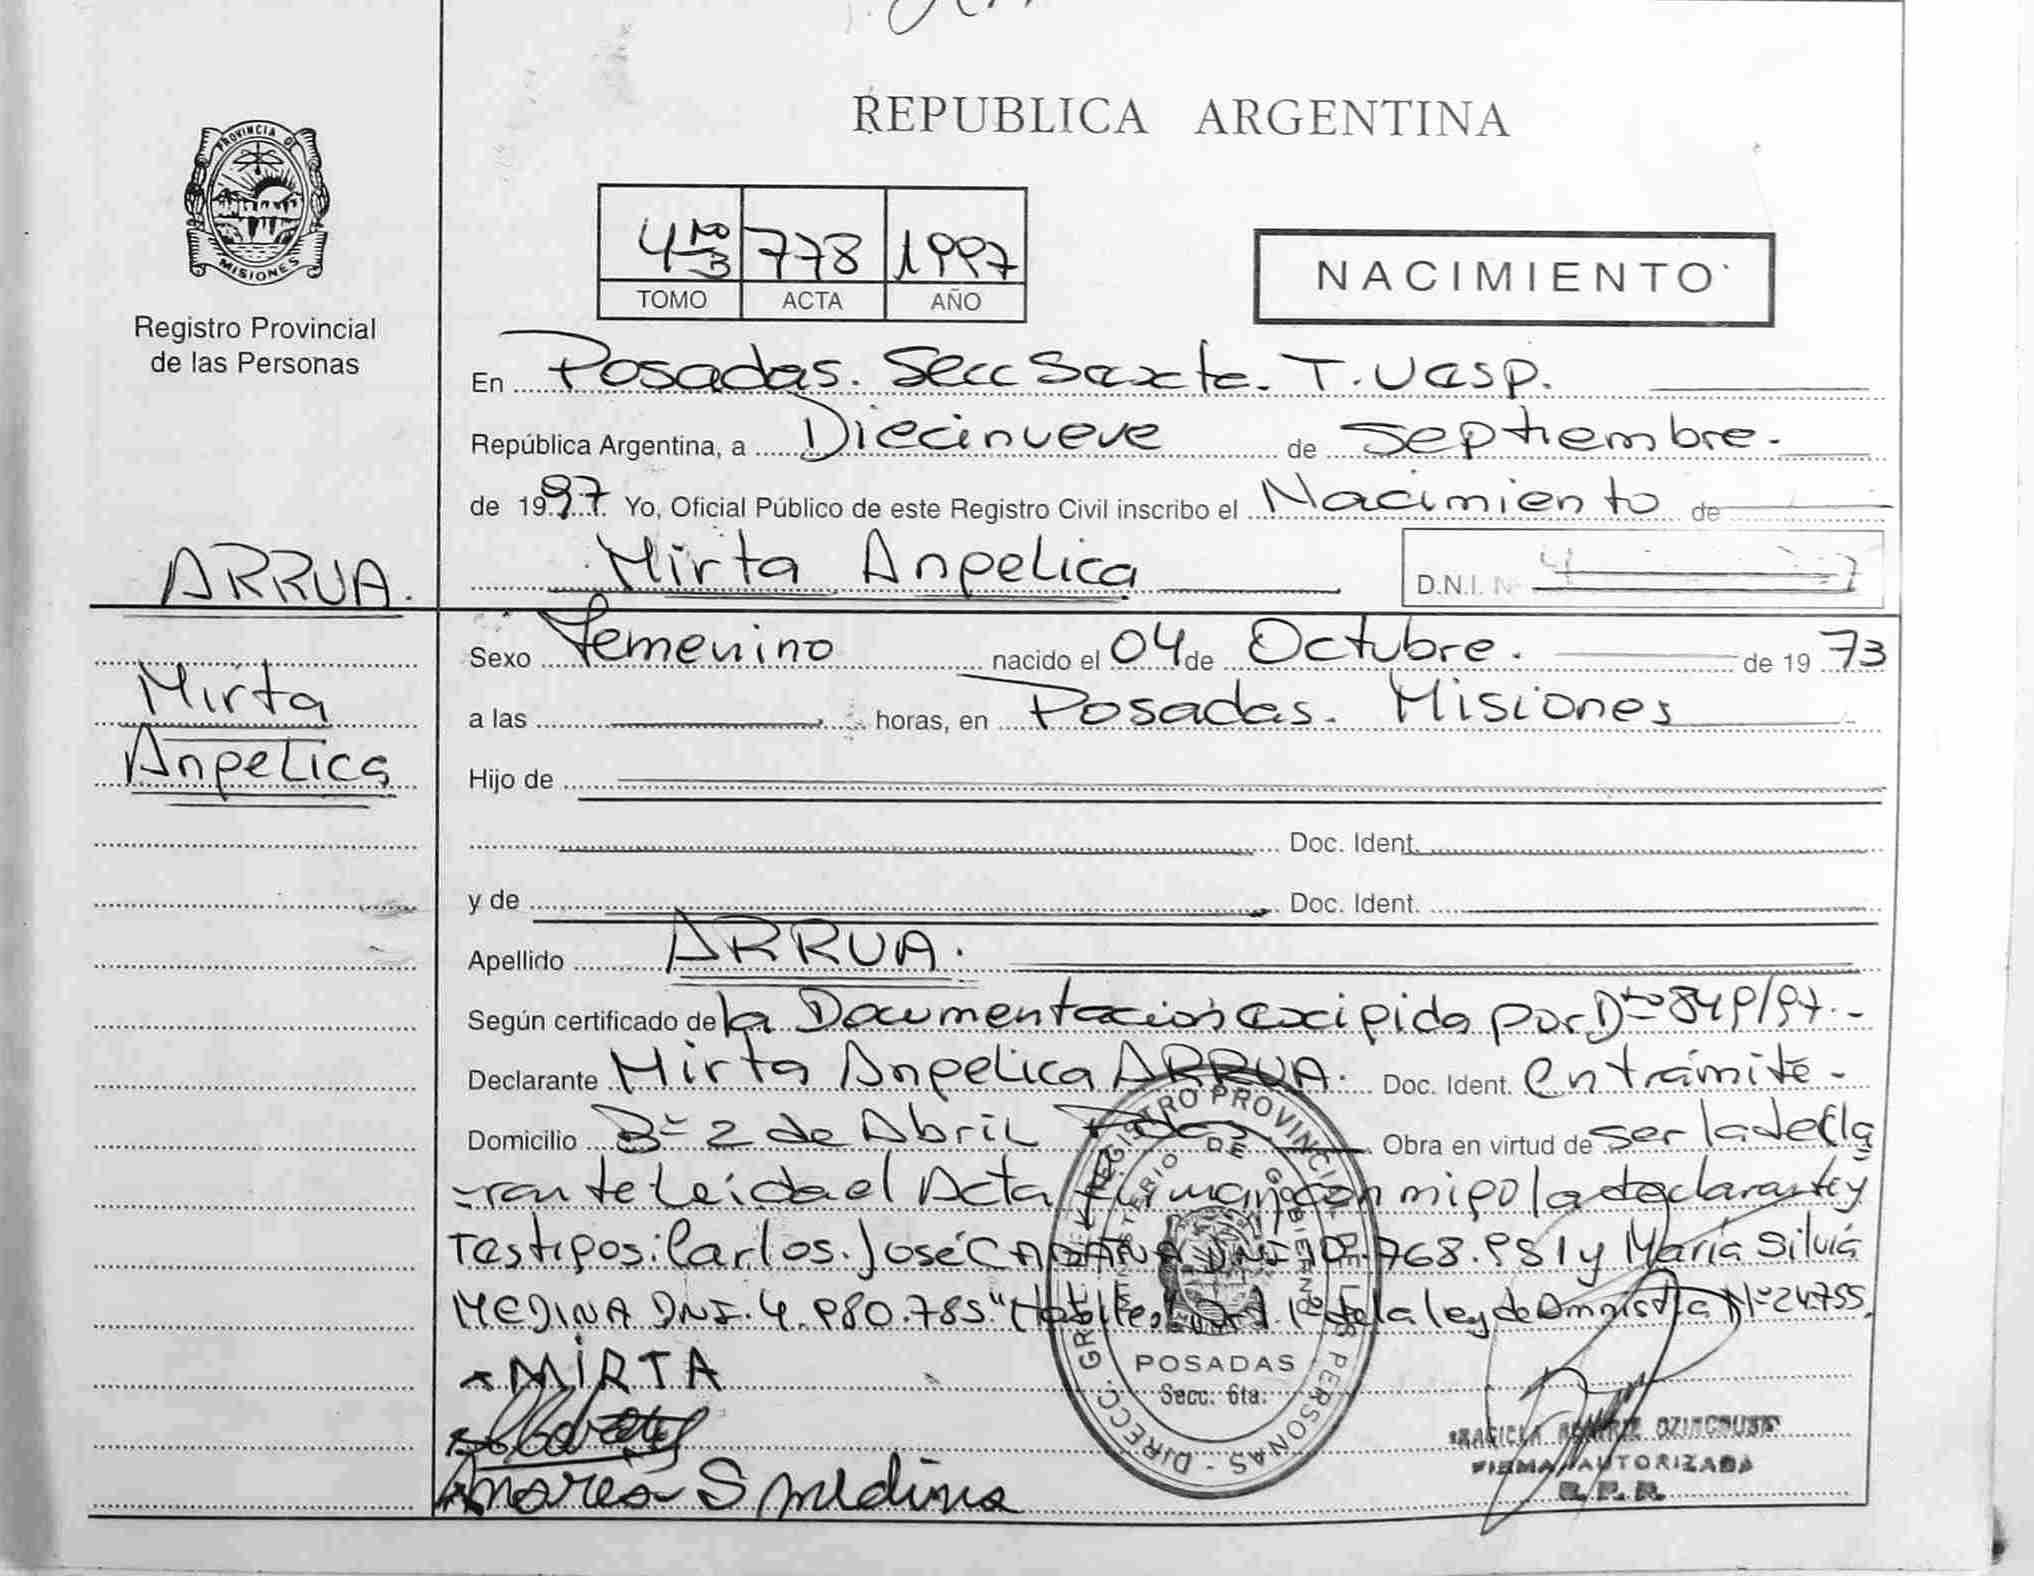 REPUBLICA ARGENTINA
PROVINCIA DE
MISIONES
Registro Provincial
de las Personas
4to B 778 1997
TOMO ACTA AÑO
NACIMIENTO
En Posadas. Secc Sexta. T. Vesp.
República Argentina, a Diecinueve de Septiembre.
de 1997. Yo, Oficial Público de este Registro Civil inscribo el Nacimiento de
Mirta Angelica D.N.I. Nº
ARRUA.
Mirta
Angelica
Sexo Femenino nacido el 04 de Octubre. de 1973
a las horas, en Posadas. Misiones
Hijo de
Doc. Ident.
y de Doc. Ident.
Apellido ARRUA.
Según certificado de la Documentación exigida por Dto 849/97.-
Declarante Mirta Angelica ARRUA. Doc. Ident. en trámite-
Domicilio Bº 2 de Abril Obra en virtud de ser la decla
-rante Leída el Acta firman conmigo la declarante y
Testigos: Carlos José DNI 10.768.951 y María Silvia
MEDINA DNI. 4.980.785 de la ley de Amnistía Nº 24.755.
MIRTA
María S Medina
DIRECC. GRAL. REGISTRO PROVINCIAL DE LAS PERSONAS
MINISTERIO DE GOBIERNO
POSADAS
Secc. 6ta.
FIRMA AUTORIZADA
R.P.P.